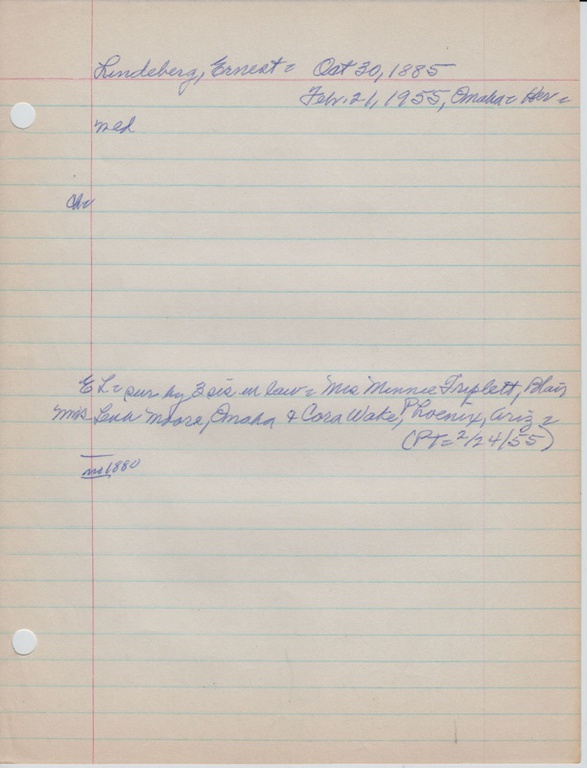 Lindeberg, Ernest = Oct 30, 1885
Febr. 21, 1955, Omaha = Her =
med
ch=
E L = sur by 3 sis in law = Mrs Minnie Triplett, Blair,
Mrs Lena Moore, Omaha & Cora Wake, Phoenix, Ariz =
(PT = 2/24/55)
no 1880